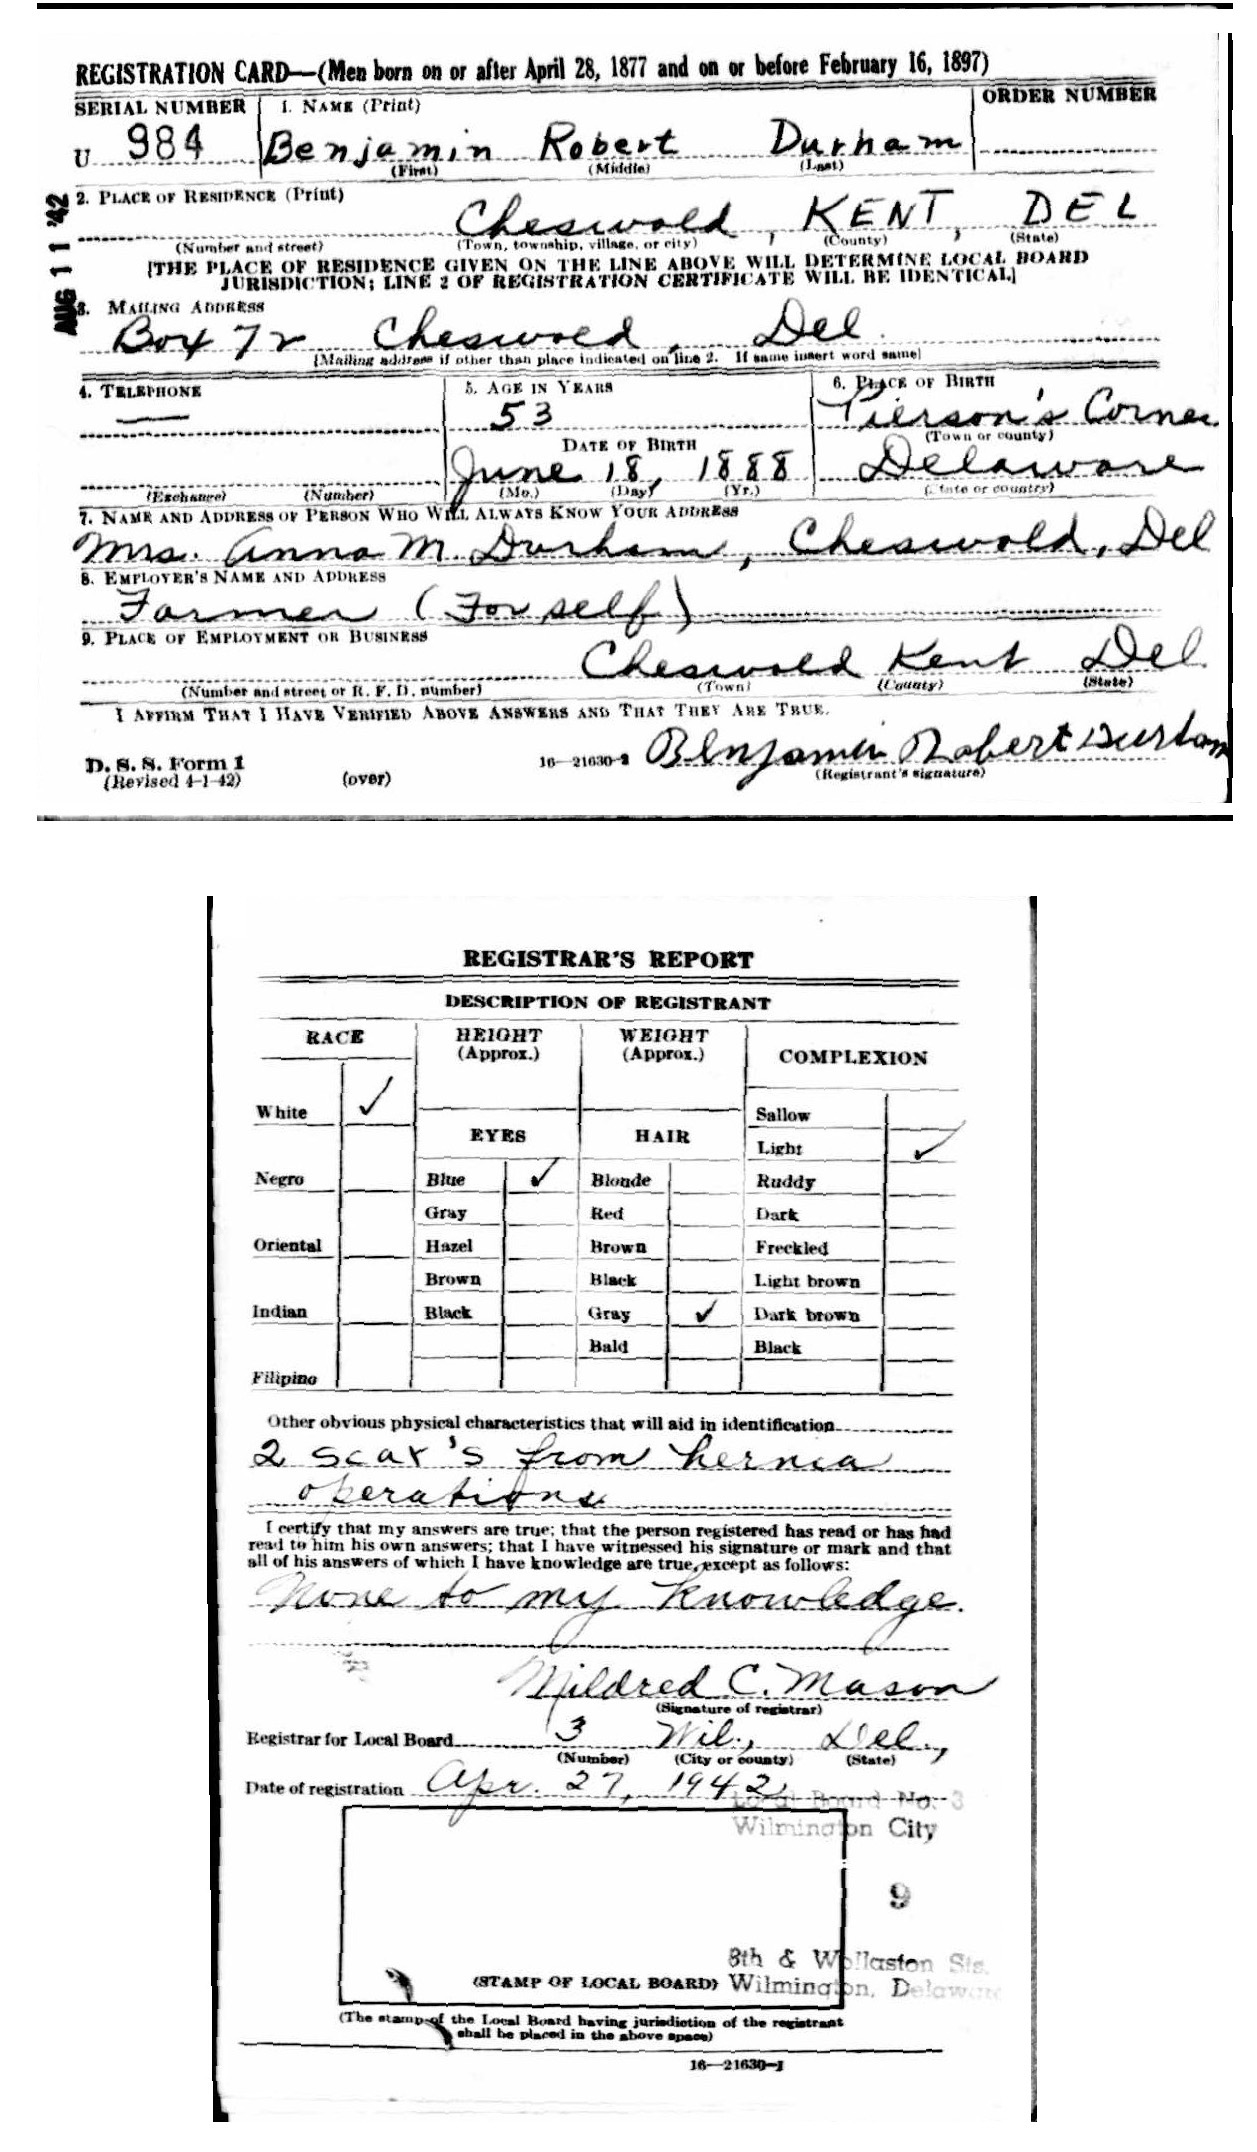 REGISTRATION CARD—(Men born on or after April 28, 1877 and on or before February 16, 1897)
SERIAL NUMBER 1. NAME (Print) ORDER NUMBER
U 984 Benjamin Robert Durham
(First) (Middle) (Last)
AUG 11 '42
2. PLACE OF RESIDENCE (Print)
Cheswold, KENT, DEL
(Number and street) (Town, township, village, or city) (County) (State)
[THE PLACE OF RESIDENCE GIVEN ON THE LINE ABOVE WILL DETERMINE LOCAL BOARD
JURISDICTION; LINE 2 OF REGISTRATION CERTIFICATE WILL BE IDENTICAL]
3. MAILING ADDRESS
Box 72 Cheswold, Del.
[Mailing address if other than place indicated on line 2. If same insert word same]
4. TELEPHONE 5. AGE IN YEARS 6. PLACE OF BIRTH
— 53 Pierson's Corner
(Town or county)
DATE OF BIRTH
June 18, 1888 Delaware
(Exchange) (Number) (Mo.) (Day) (Yr.) (State or country)
7. NAME AND ADDRESS OF PERSON WHO WILL ALWAYS KNOW YOUR ADDRESS
Mrs. Anna M. Durham, Cheswold, Del
8. EMPLOYER'S NAME AND ADDRESS
Farmer (For self)
9. PLACE OF EMPLOYMENT OR BUSINESS
Cheswold Kent Del.
(Number and street or R. F. D. number) (Town) (County) (State)
I AFFIRM THAT I HAVE VERIFIED ABOVE ANSWERS AND THAT THEY ARE TRUE.
D. S. S. Form 1 16—21630-2 Benjamin Robert Durham
(Revised 4-1-42) (over) (Registrant's signature)
REGISTRAR'S REPORT
DESCRIPTION OF REGISTRANT
RACE HEIGHT (Approx.) WEIGHT (Approx.) COMPLEXION
White ✓ Sallow
EYES HAIR Light ✓
Negro Blue ✓ Blonde Ruddy
Gray Red Dark
Oriental Hazel Brown Freckled
Brown Black Light brown
Indian Black Gray ✓ Dark brown
Bald Black
Filipino
Other obvious physical characteristics that will aid in identification
2 scar's from hernia
operations
I certify that my answers are true; that the person registered has read or has had
read to him his own answers; that I have witnessed his signature or mark and that
all of his answers of which I have knowledge are true, except as follows:
None to my knowledge.
Mildred C. Mason
(Signature of registrar)
Registrar for Local Board 3 Wil., Del.,
(Number) (City or county) (State)
Date of registration Apr. 27, 1942
Local Board No. 3
Wilmington City
9
8th & Wollaston Sts.
(STAMP OF LOCAL BOARD) Wilmington, Delaware
(The stamp of the Local Board having jurisdiction of the registrant
shall be placed in the above space)
16—21630-1